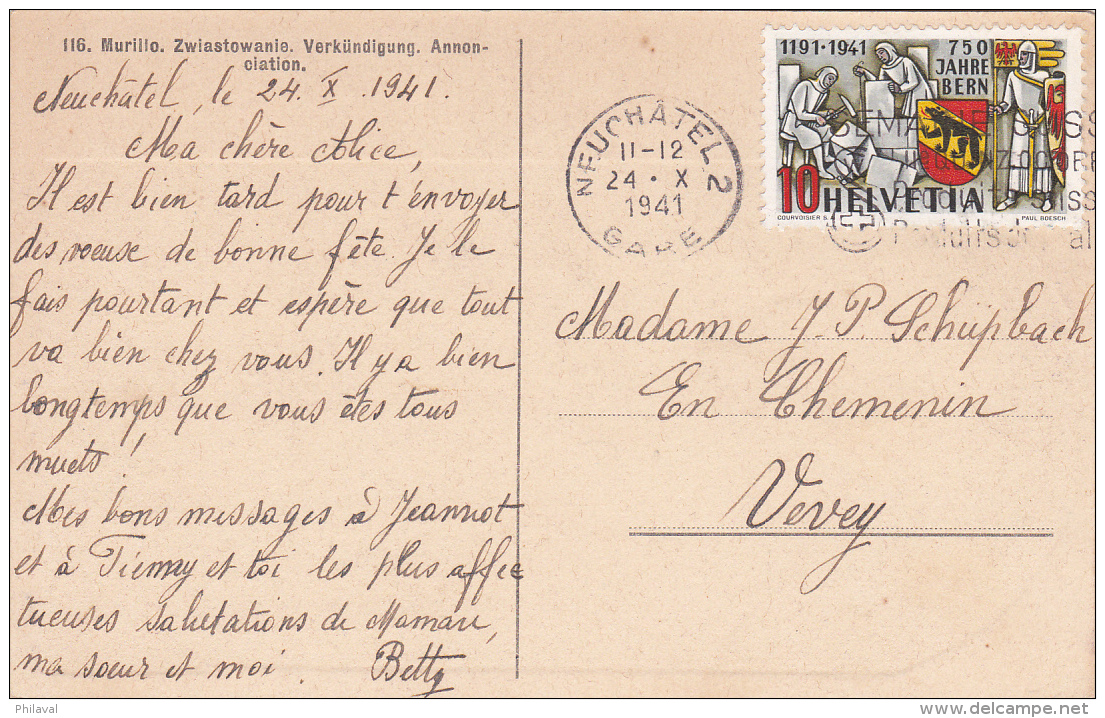 116. Murillo. Zwiastowanie. Verkündigung. Annon-
ciation.
Neuchâtel, le 24. X. 1941.
Ma chère Alice,
Il est bien tard pour t'envoyer
des voeuse de bonne fête. Je le
fais pourtant et espère que tout
va bien chez vous. Il y a bien
longtemps que vous êtes tous
muets!
Mes bons messages à Jeannot
et à et toi les plus affec
tueuses salutations de Maman,
ma soeur et moi. Betty
NEUCHÂTEL 2
11-12
24 · X
1941
GARE
1191·1941
750
JAHRE
BERN
SEMAINE SUISSE
10 HELVETIA
COURVOISIER S.A. PAUL BOESCH
Madame J. P. Schüpbach
En Chemenin
Vevey
Philaval
delcampe.net